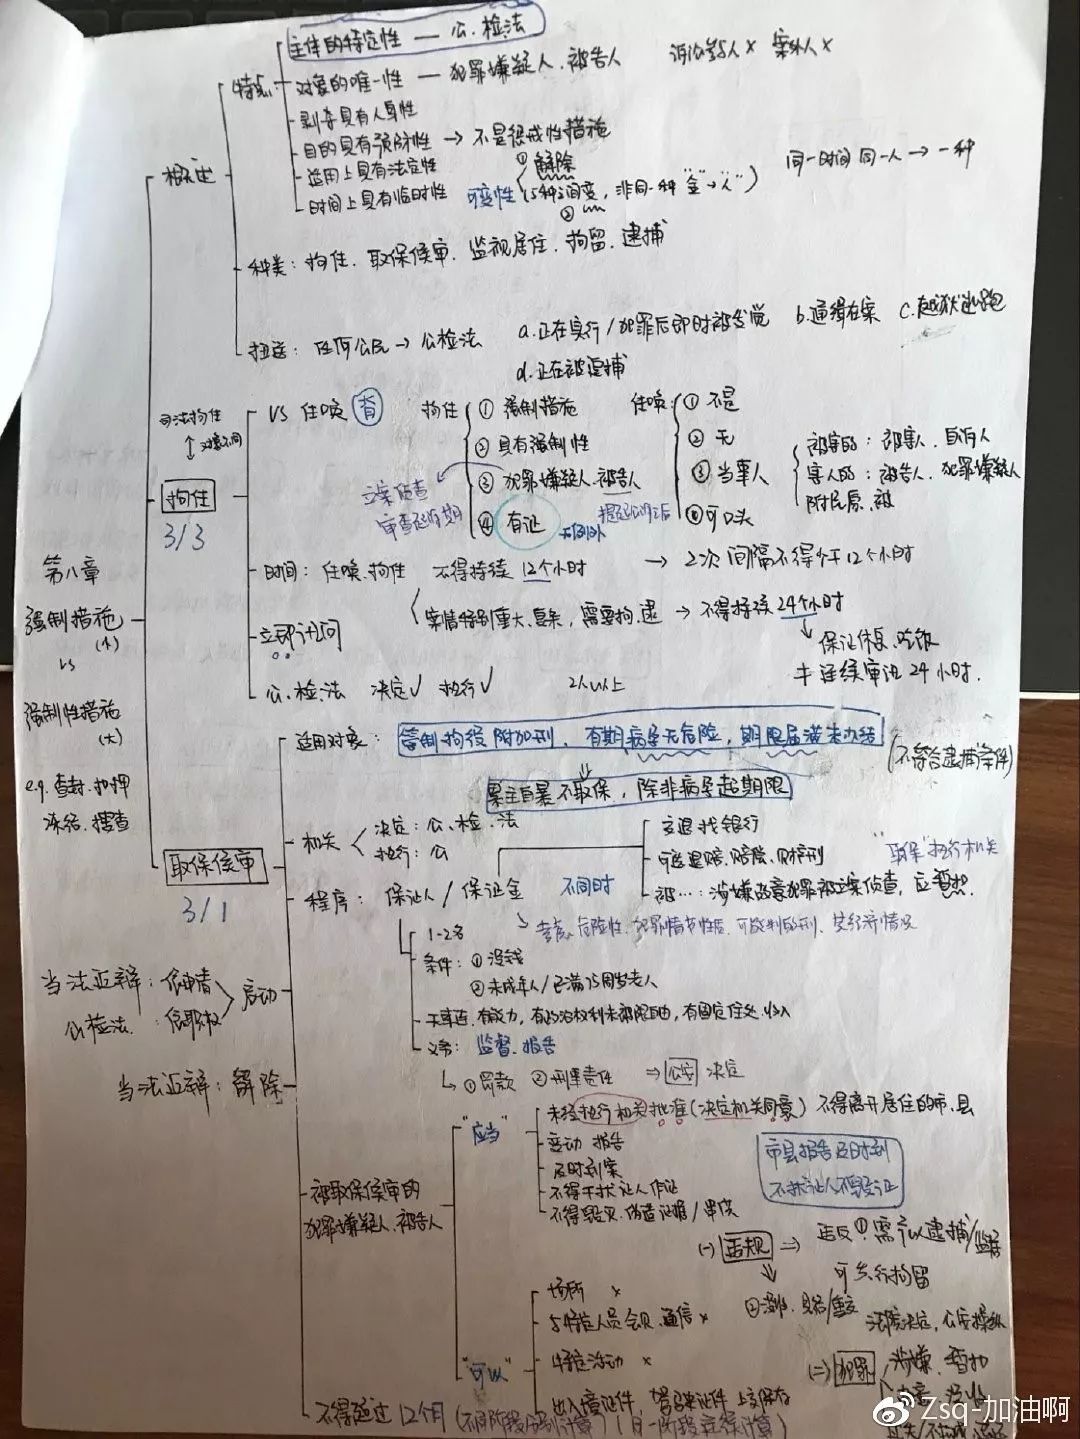 主体的特定性 — 公、检、法
特点
对象的唯一性 — 犯罪嫌疑人、被告人 诉讼参与人× 案外人×
剥夺具有人身性
目的具有预防性 → 不是惩戒性措施
适用上具有法定性 ①解除
时间上具有临时性 可变性 (5种之间变, 非同一种"金"→"人") 同一时间 同一人 → 一种
②
概述
种类: 拘传、取保候审、监视居住、拘留、逮捕
扭送: 任何公民 → 公检法 a.正在实行/犯罪后即时被发觉 b.通缉在案 c.越狱逃跑
d.正在被追捕
司法拘传
对象不同
VS 传唤 背 拘传 ①强制措施 传唤 ①不是
②具有强制性 ②无
③犯罪嫌疑人、被告人 ③当事人
④有证 无例外 ④可口头
被害的: 被害人、自诉人
害人的: 被告人、犯罪嫌疑人
附民原、被
立案侦查
审查起诉期
提起公诉之后
拘传
3/3
时间: 传唤、拘传 不得持续12个小时 → 2次间隔不得少于12个小时
案情特别重大、复杂, 需要拘、逮 → 不得持续24个小时
保证休息、吃饭
≠连续审讯24小时.
立即讯问
公、检、法 决定√ 执行√ 2人以上
第八章
强制措施
(小)
VS
强制性措施
(大)
e.g. 查封、扣押
冻结、搜查
适用对象: 管制拘役附加刑、有期病孕无危险, 期限届满未办结
(不符合逮捕条件)
累主自暴不取保, 除非病孕超期限
取保候审
3/1
机关 决定: 公、检、法
执行: 公
程序: 保证人/保证金 不同时
交退找银行
可送退赔、赔偿、财产刑
被…: 涉嫌故意犯罪被立案侦查, 应暂扣.
"取保"执行机关
考虑、危险性、犯罪情节性质、可能判的刑、其经济情况
1-2名
条件: ①没钱
②未成年人/已满75周岁老人
无牵连、有能力、有政治权利未被限自由, 有固定住处、收入
义务: 监督、报告
①罚款 ②刑事责任 ⇒ 公安 决定
当法近辩: 依申请
公检法: 依职权
启动
当法近辩: 解除
被取保候审的
犯罪嫌疑人、被告人
"应当"
未经执行机关批准(决定机关同意) 不得离开居住的市、县
变动 报告
及时到案
不得干扰证人作证
不得毁灭、伪造证据/串供
市县报告及时到
不扰证人不毁证
(一) 违规 ⇒ 违反 ①需予以逮捕/监居
可先行拘留
法院决定, 公安
"可以"
场所 ×
与特定人员会见、通信 ×
特定活动 ×
出入境证件, 驾驶证件 上交保存
(二) 犯罪 涉嫌: 暂扣
不得超过12个月 (不同阶段分别计算)
@Zsq-加油啊